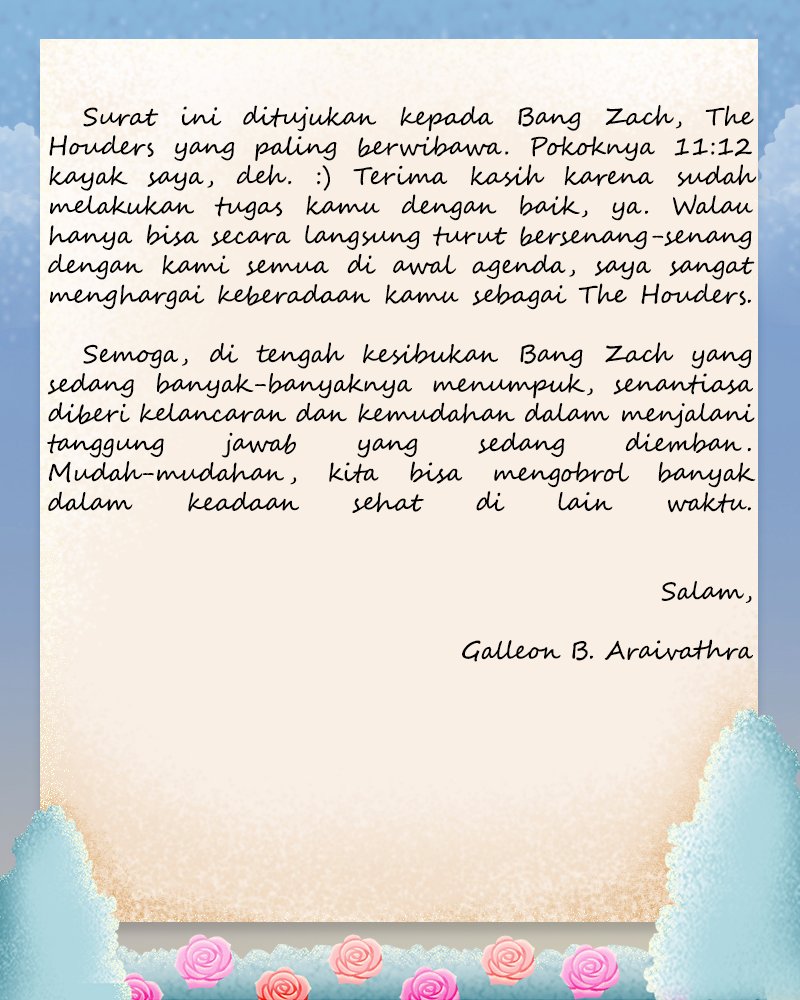 Surat ini ditujukan kepada Bang Zach, The
Houders yang paling berwibawa. Pokoknya 11:12
kayak saya, deh. :) Terima kasih karena sudah
melakukan tugas kamu dengan baik, ya. Walau
hanya bisa secara langsung turut bersenang-senang
dengan kami semua di awal agenda, saya sangat
menghargai keberadaan kamu sebagai The Houders.
Semoga, di tengah kesibukan Bang Zach yang
sedang banyak-banyaknya menumpuk, senantiasa
diberi kelancaran dan kemudahan dalam menjalani
tanggung jawab yang sedang diemban.
Mudah-mudahan, kita bisa mengobrol banyak
dalam keadaan sehat di lain waktu.
Salam,
Galleon B. Araivathra